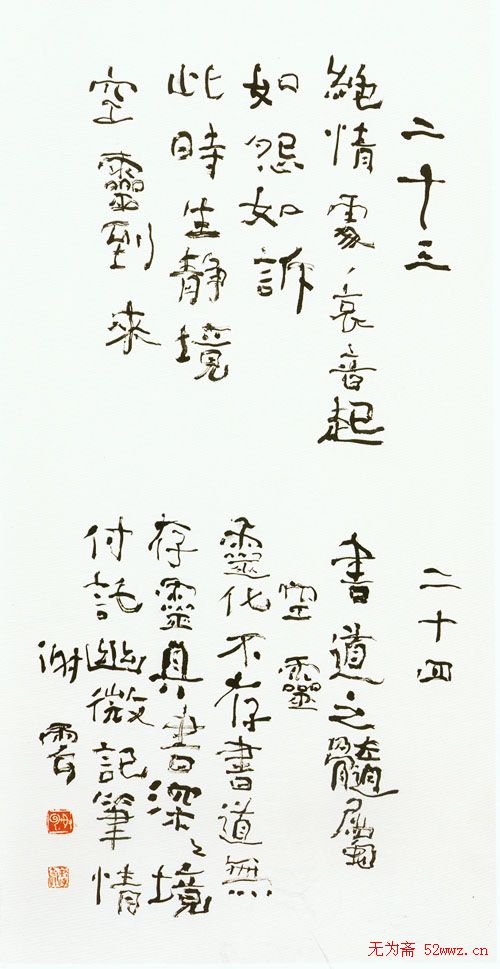 二十三
絶情處、哀音起
如怨如訴
此時生静境
空靈到來
二十四
書道之髓屬
空靈
靈化不存書道無
存靈真書深之境
付託幽微記筆情
謝雲
无为斋 52wwz.cn